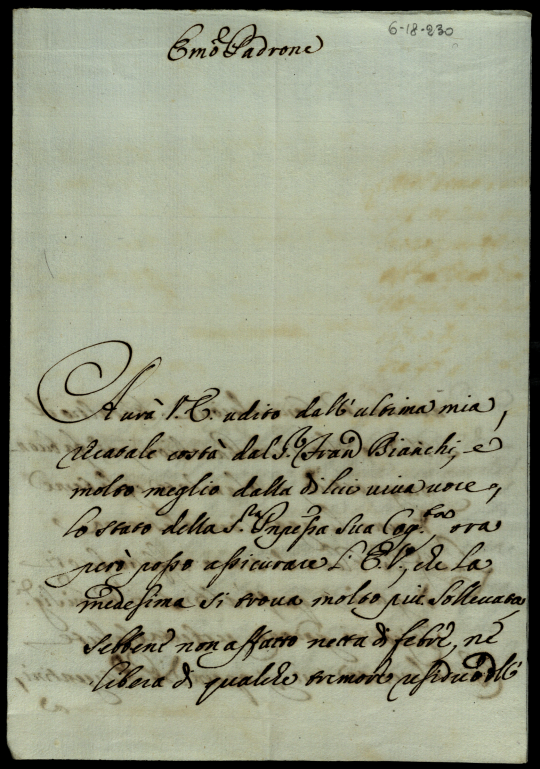 6-18-230
Emo͏̃ᵉ Padrone
Avrà V.E. udito dall' ultima mia,
recatale costà dal S.r Fran.co Bianchi, e
molto meglio dalla di lui viva voce,
lo stato della S.ra Pnpessa sua Cog.ta, ora
però posso assicurare l'E.V., che la
medesima si trova molto più sollevata,
sebbene non affatto netta di febre, né
libera di qualche tremore residuo dell'